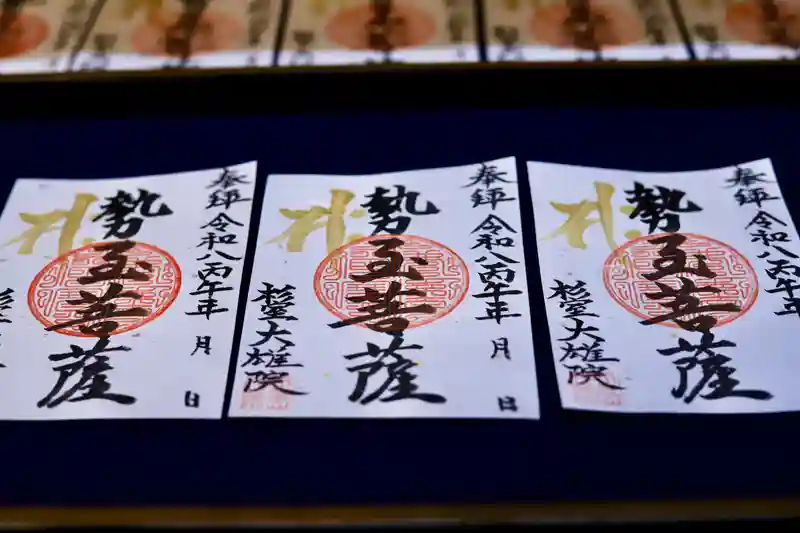 奉拝 令和八丙午年 月 日
勢至菩薩
杉室大雄院
奉拝 令和八丙午年 月 日
勢至菩薩
杉室大雄院
奉拝 令和八丙午年
勢至菩薩